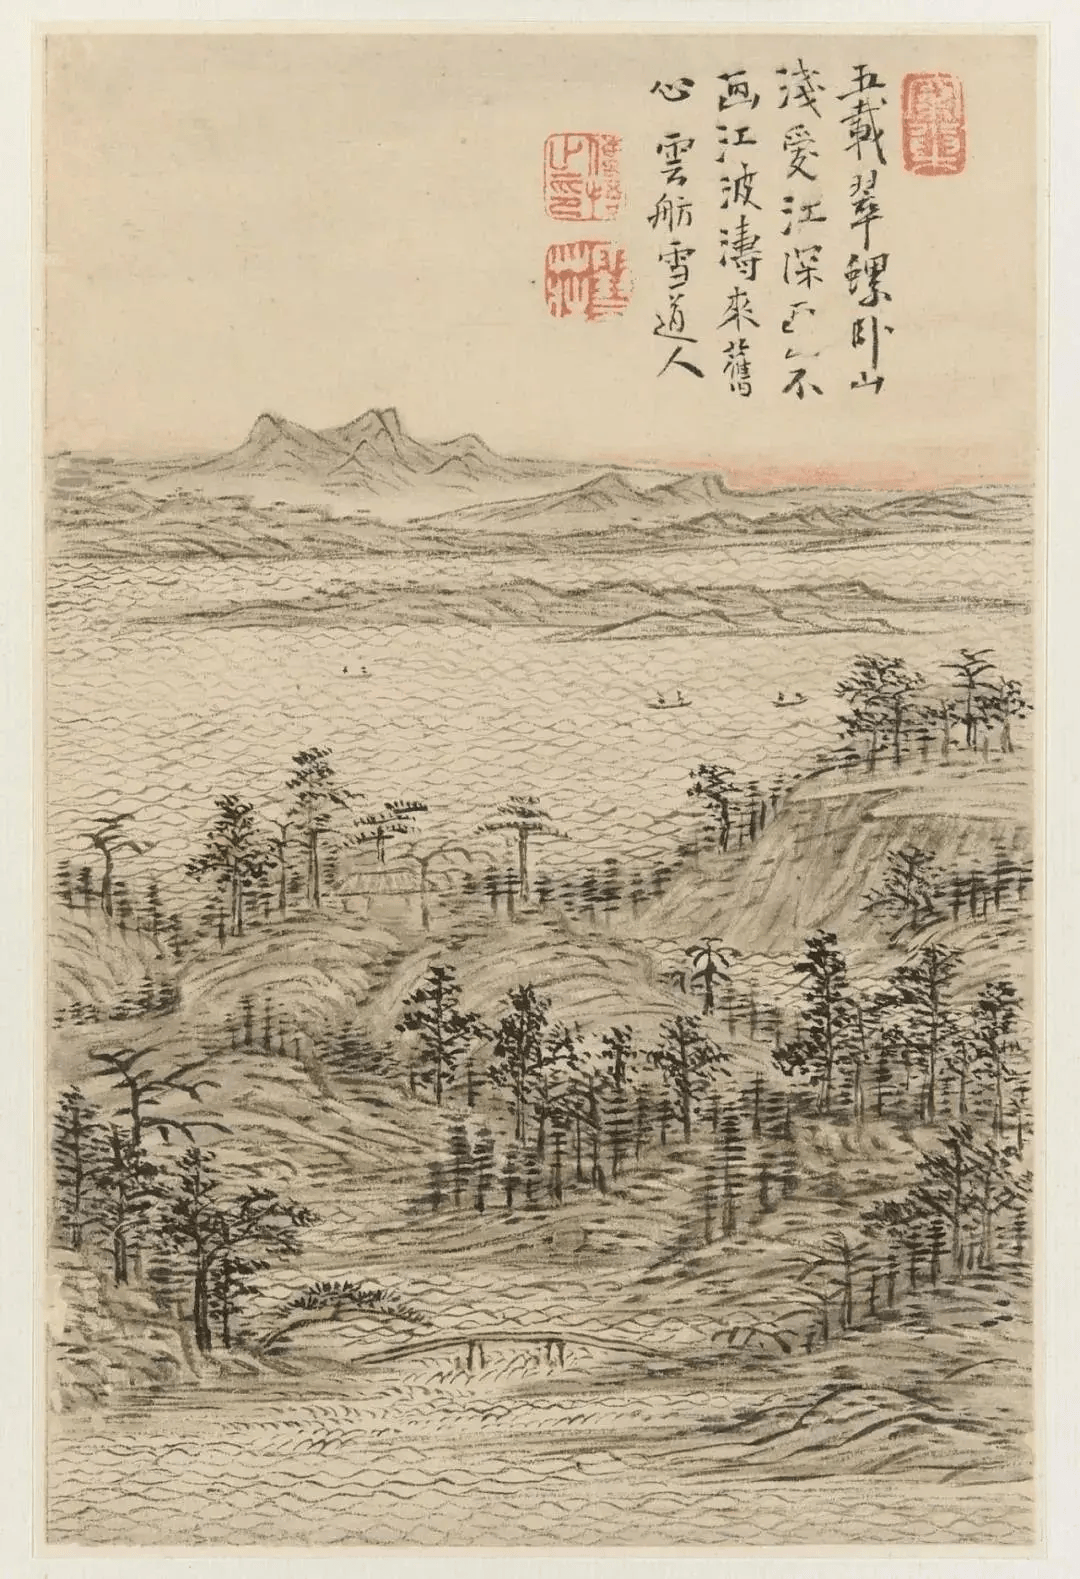 五載翠螺卧山
淺愛江深不
画江波濤來舊
心 雲舫雪道人
之印